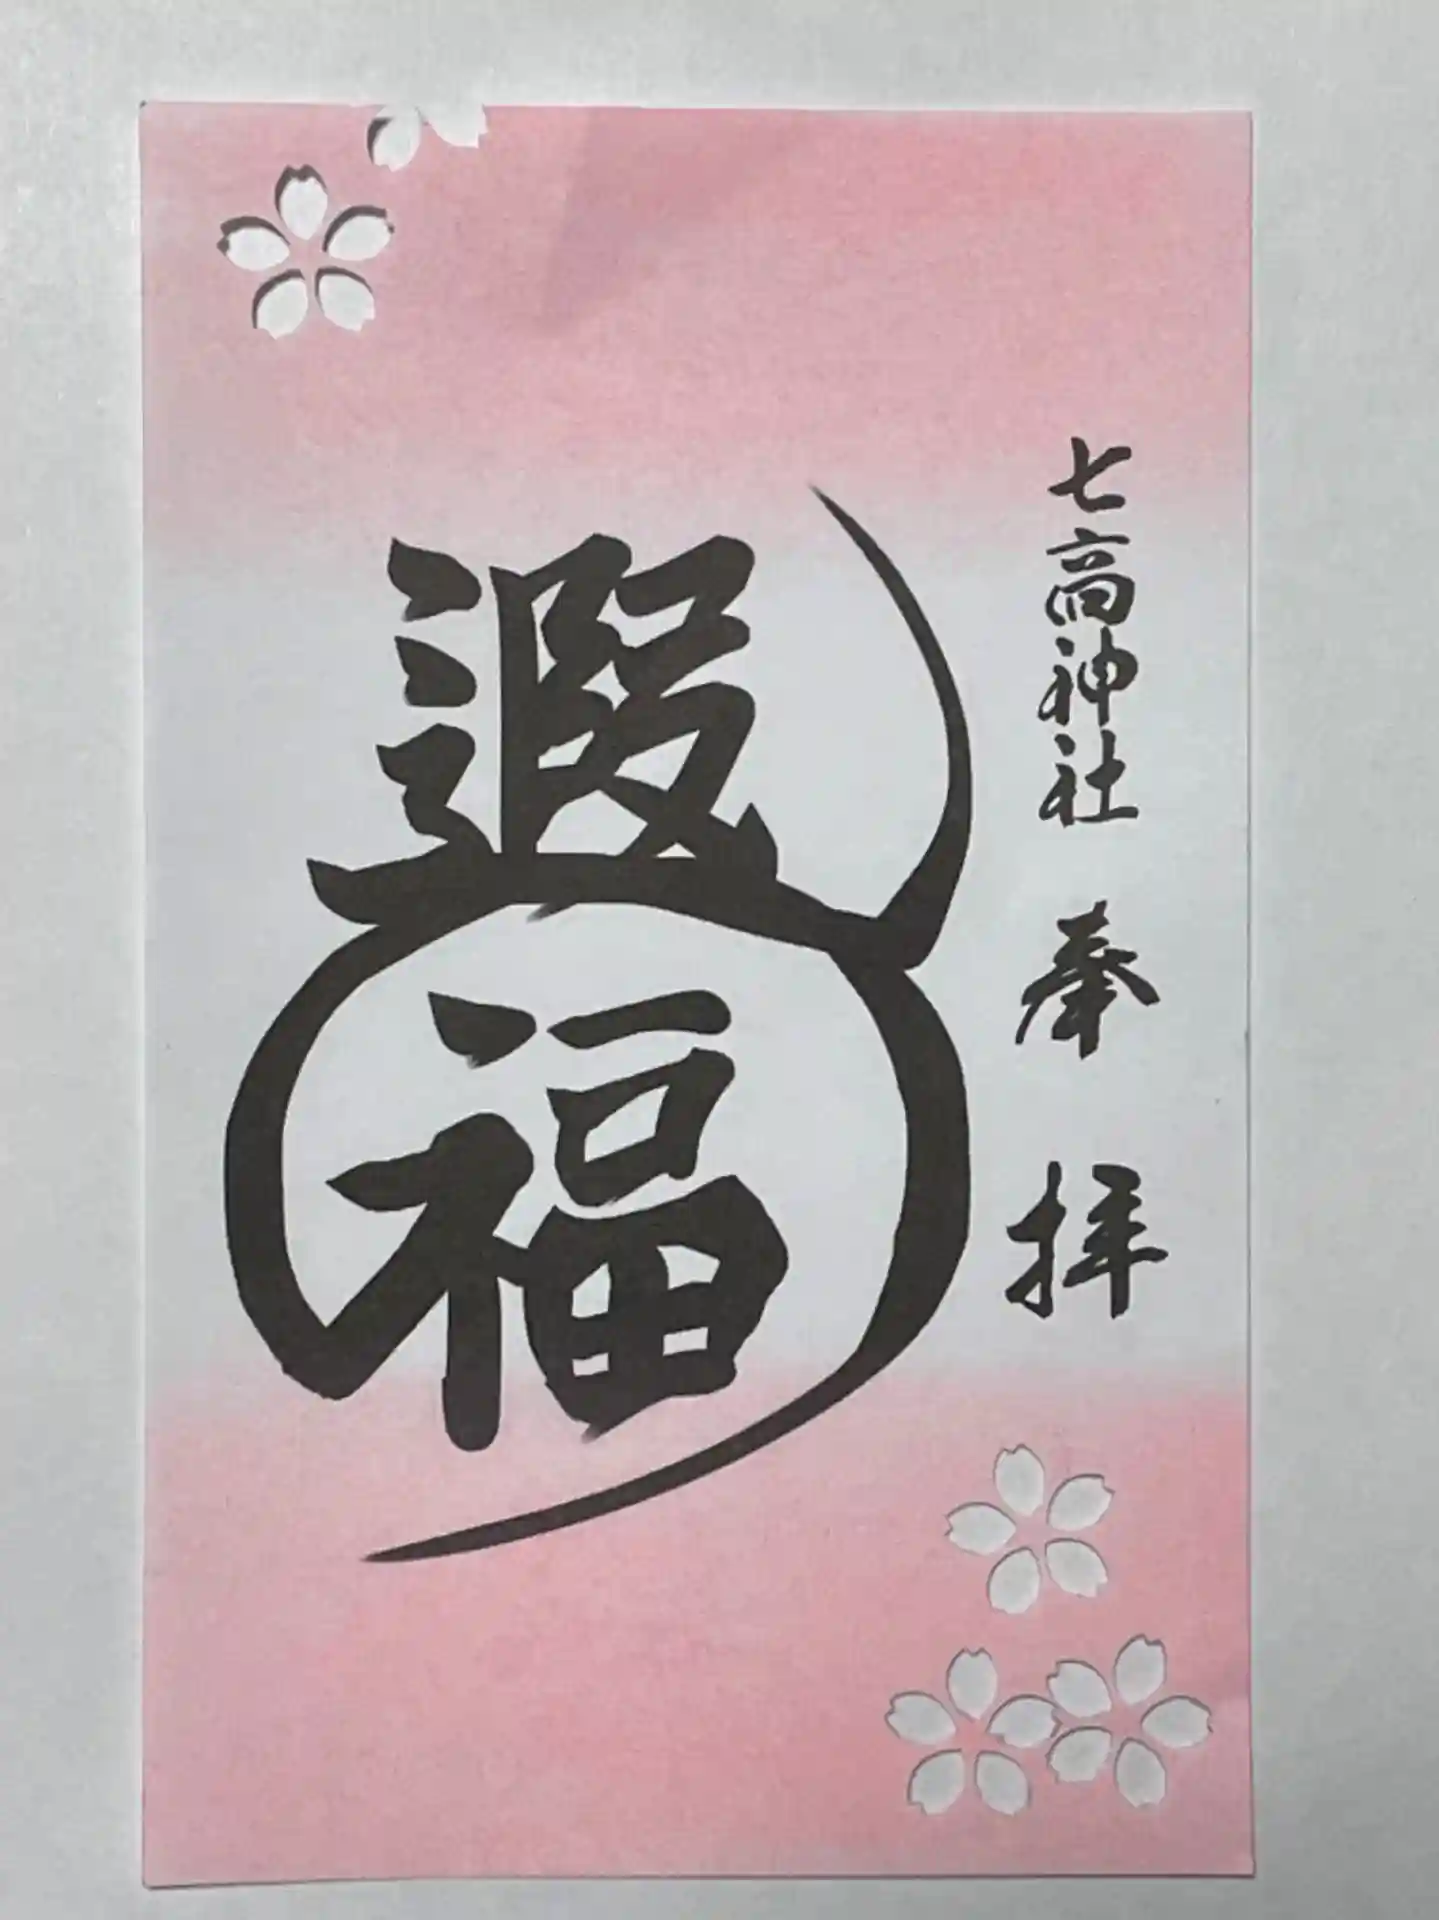 七高神社 奉拝
遐福